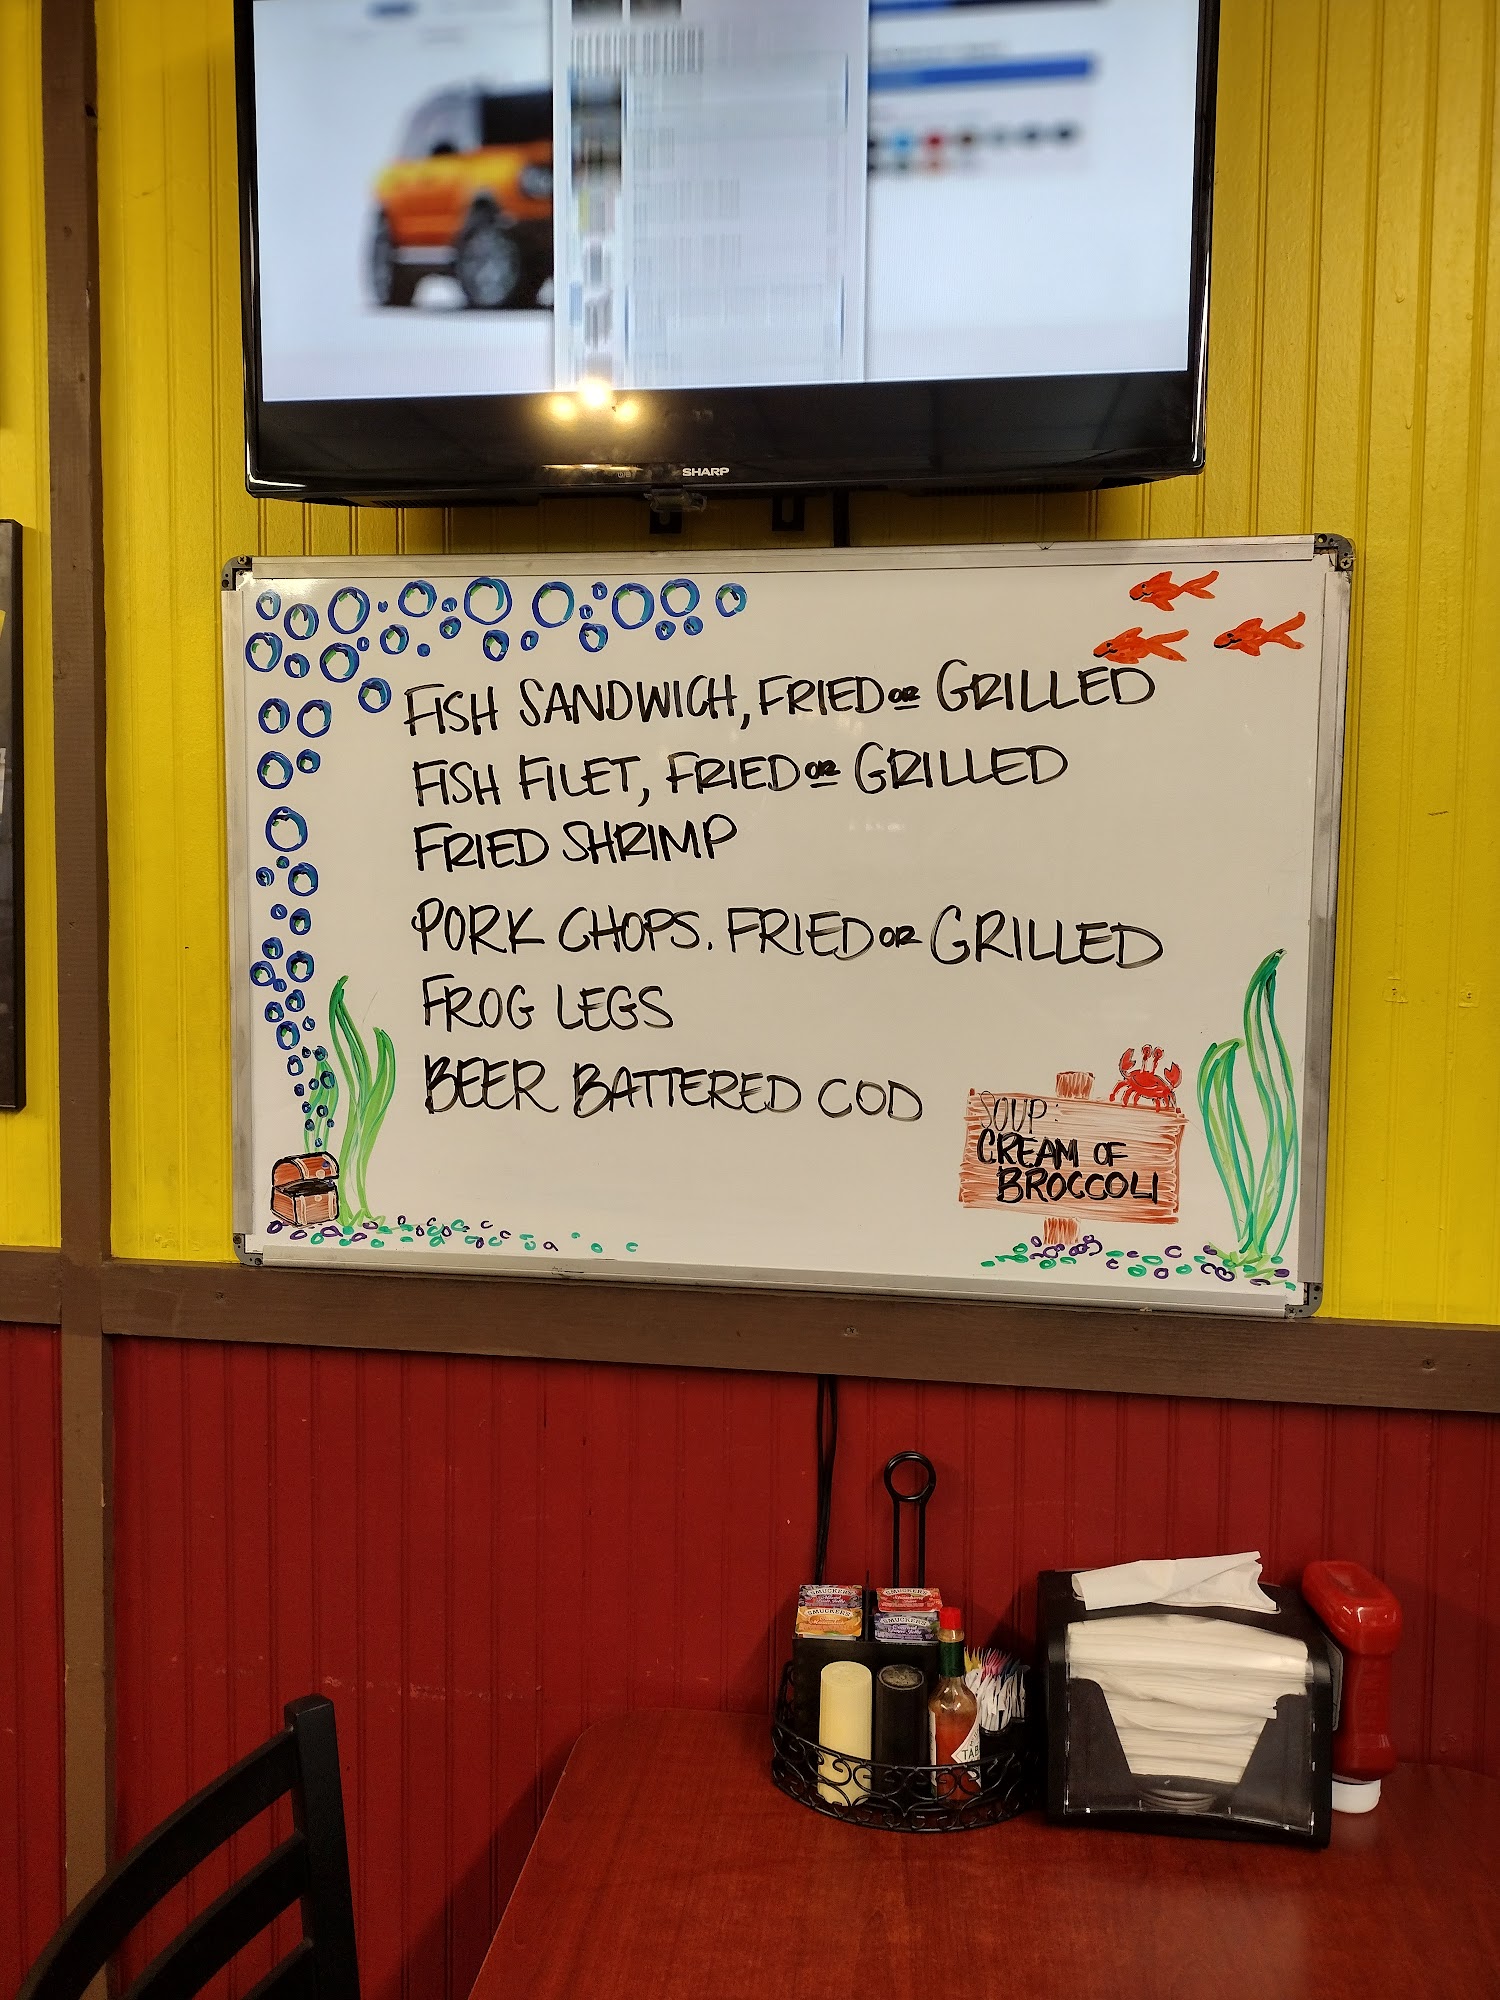 SHARP
FISH SANDWICH, FRIED OR GRILLED
FISH FILET, FRIED OR GRILLED
FRIED SHRIMP
PORK CHOPS. FRIED OR GRILLED
FROG LEGS
BEER BATTERED COD
SOUP:
CREAM OF
BROCCOLI
SMUCKER'S
SMUCKER'S
SMUCKER'S
SMUCKER'S
TAB